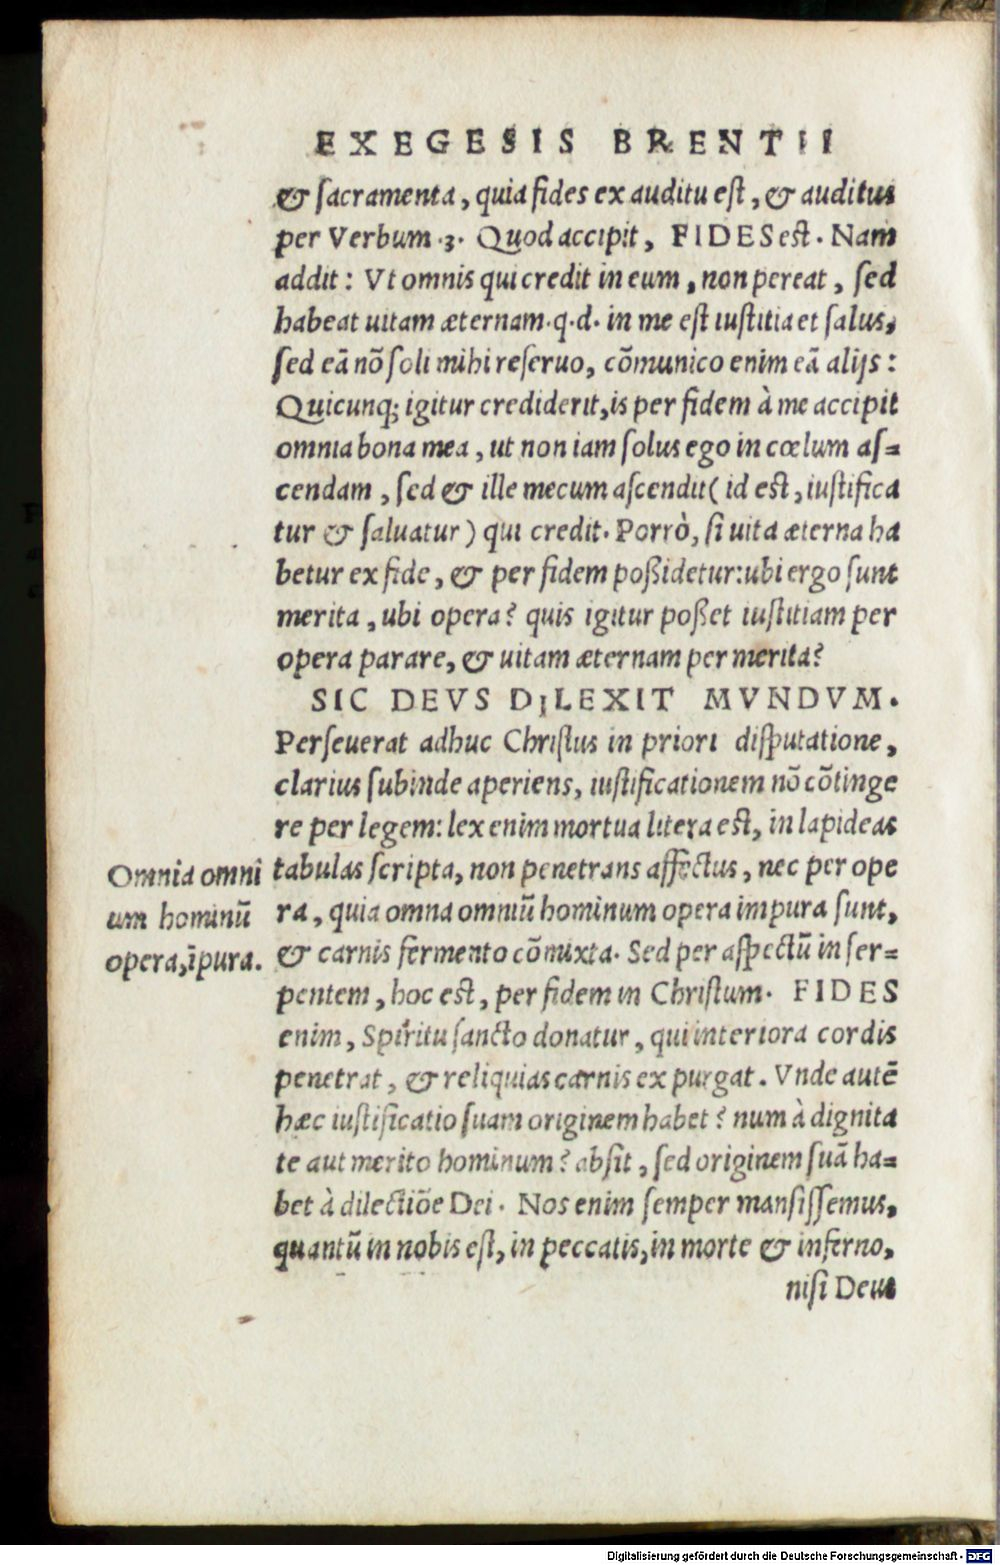 EXEGESIS BRENTII
& ſacramenta, quia fides ex auditu eſt, & auditus
per Verbum .3. Quod accipit, FIDES eſt. Nam
addit: Vt omnis qui credit in eum, non pereat, ſed
habeat uitam æternam.q.d. in me eſt iuſtitia et ſalus,
ſed eã nõ ſoli mihi reſeruo, cõmunico enim eã alijs:
Quicunq; igitur crediderit, is per fidem à me accipit
omnia bona mea, ut non iam ſolus ego in cœlum aſ=
cendam, ſed & ille mecum aſcendit( id eſt, iuſtifica
tur & ſaluatur) qui credit. Porrò, ſi uita æterna ha
betur ex fide, & per fidem poßidetur: ubi ergo ſunt
merita, ubi opera? quis igitur poßet iuſtitiam per
opera parare, & uitam æternam per merita?
SIC DEVS DILEXIT MVNDVM.
Perſeuerat adhuc Chriſtus in priori diſputatione,
clarius ſubinde aperiens, iuſtificationem nõ cõtinge
re per legem: lex enim mortua litera eſt, in lapideas
tabulas ſcripta, non penetrans affectus, nec per ope
ra, quia omna omniũ hominum opera impura ſunt,
& carnis fermento cõmixta. Sed per aſpectũ in ſer=
pentem, hoc eſt, per fidem in Chriſtum. FIDES
enim, Spiritu ſancto donatur, qui interiora cordis
penetrat, & reliquias carnis expurgat. Vnde autẽ
hæc iuſtificatio ſuam originem habet? num à dignita
te aut merito hominum? abſit, ſed originem ſuã ha=
bet à dilectiõe Dei. Nos enim ſemper manſiſſemus,
quantũ in nobis eſt, in peccatis, in morte & inferno,
niſi Deus
Omnia omni
um hominũ
opera, ĩpura.
Digitalisierung gefördert durch die Deutsche Forschungsgemeinschaft - DFG